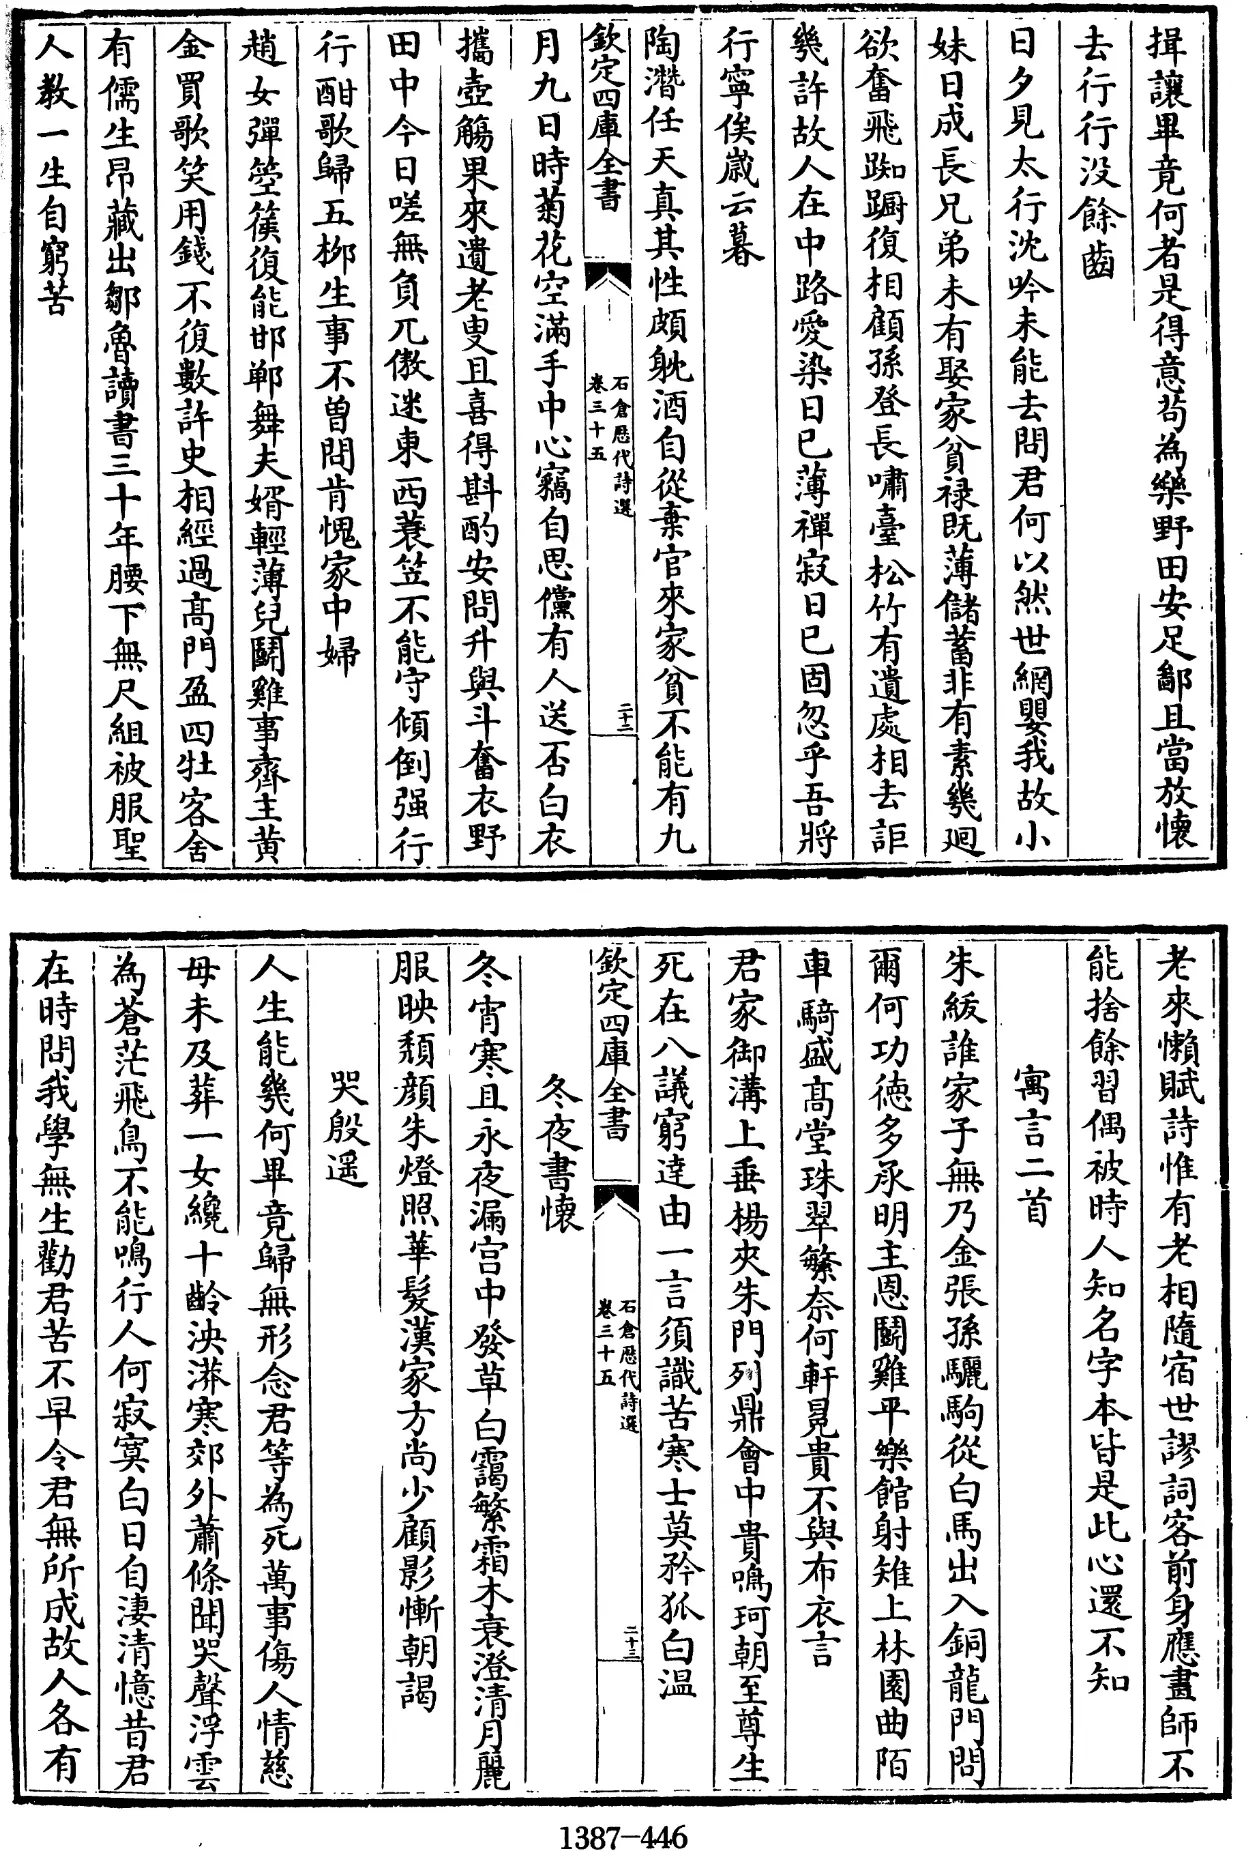 揖讓畢竟何者是得意苟為樂野田安足鄙且當放懷
去行行没餘齒
日夕見太行沈吟未能去問君何以然世網嬰我故小
妹日成長兄弟未有娶家貧禄既薄儲蓄非有素幾迴
欲奮飛踟蹰復相顧孫登長嘯臺松竹有遺處相去詎
幾許故人在中路愛染日已薄禪寂日已固忽乎吾將
行寧俟歲云暮
陶潛任天真其性頗躭酒自從棄官來家貧不能有九
欽定四庫全書
石倉歷代詩選
卷三十五
二十二
月九日時菊花空滿手中心竊自思儻有人送否白衣
攜壺觴果來遺老叟且喜得斟酌安問升與斗奮衣野
田中今日嗟無負兀傲迷東西蓑笠不能守傾倒强行
行酣歌歸五栁生事不曾問肯愧家中婦
趙女彈箜篌復能邯鄲舞夫婿輕薄兒鬭雞事齊主黄
金買歌笑用錢不復數許史相經過高門盈四牡客舍
有儒生昂藏出鄒魯讀書三十年腰下無尺組被服聖
人教一生自窮苦
老來懶賦詩惟有老相隨宿世謬詞客前身應畫師不
能捨餘習偶被時人知名字本皆是此心還不知
寓言二首
朱紱誰家子無乃金張孫驪駒從白馬出入銅龍門問
爾何功德多承明主恩鬭雞平樂館射雉上林園曲陌
車騎盛高堂珠翠繁奈何軒冕貴不與布衣言
君家御溝上垂楊夾朱門列鼎會中貴鳴珂朝至尊生
死在八議窮達由一言須識苦寒士莫矜狐白温
欽定四庫全書
石倉歷代詩選
卷三十五
二十三
冬夜書懷
冬宵寒且永夜漏宫中發草白靄繁霜木衰澄清月麗
服映頹顔朱燈照華髮漢家方尚少顧影慚朝謁
哭殷遥
人生能幾何畢竟歸無形念君等為死萬事傷人情慈
母未及葬一女纔十齡泱漭寒郊外蕭條聞哭聲浮雲
為蒼茫飛鳥不能鳴行人何寂寞白日自淒清憶昔君
在時問我學無生勸君苦不早令君無所成故人各有
1387-446